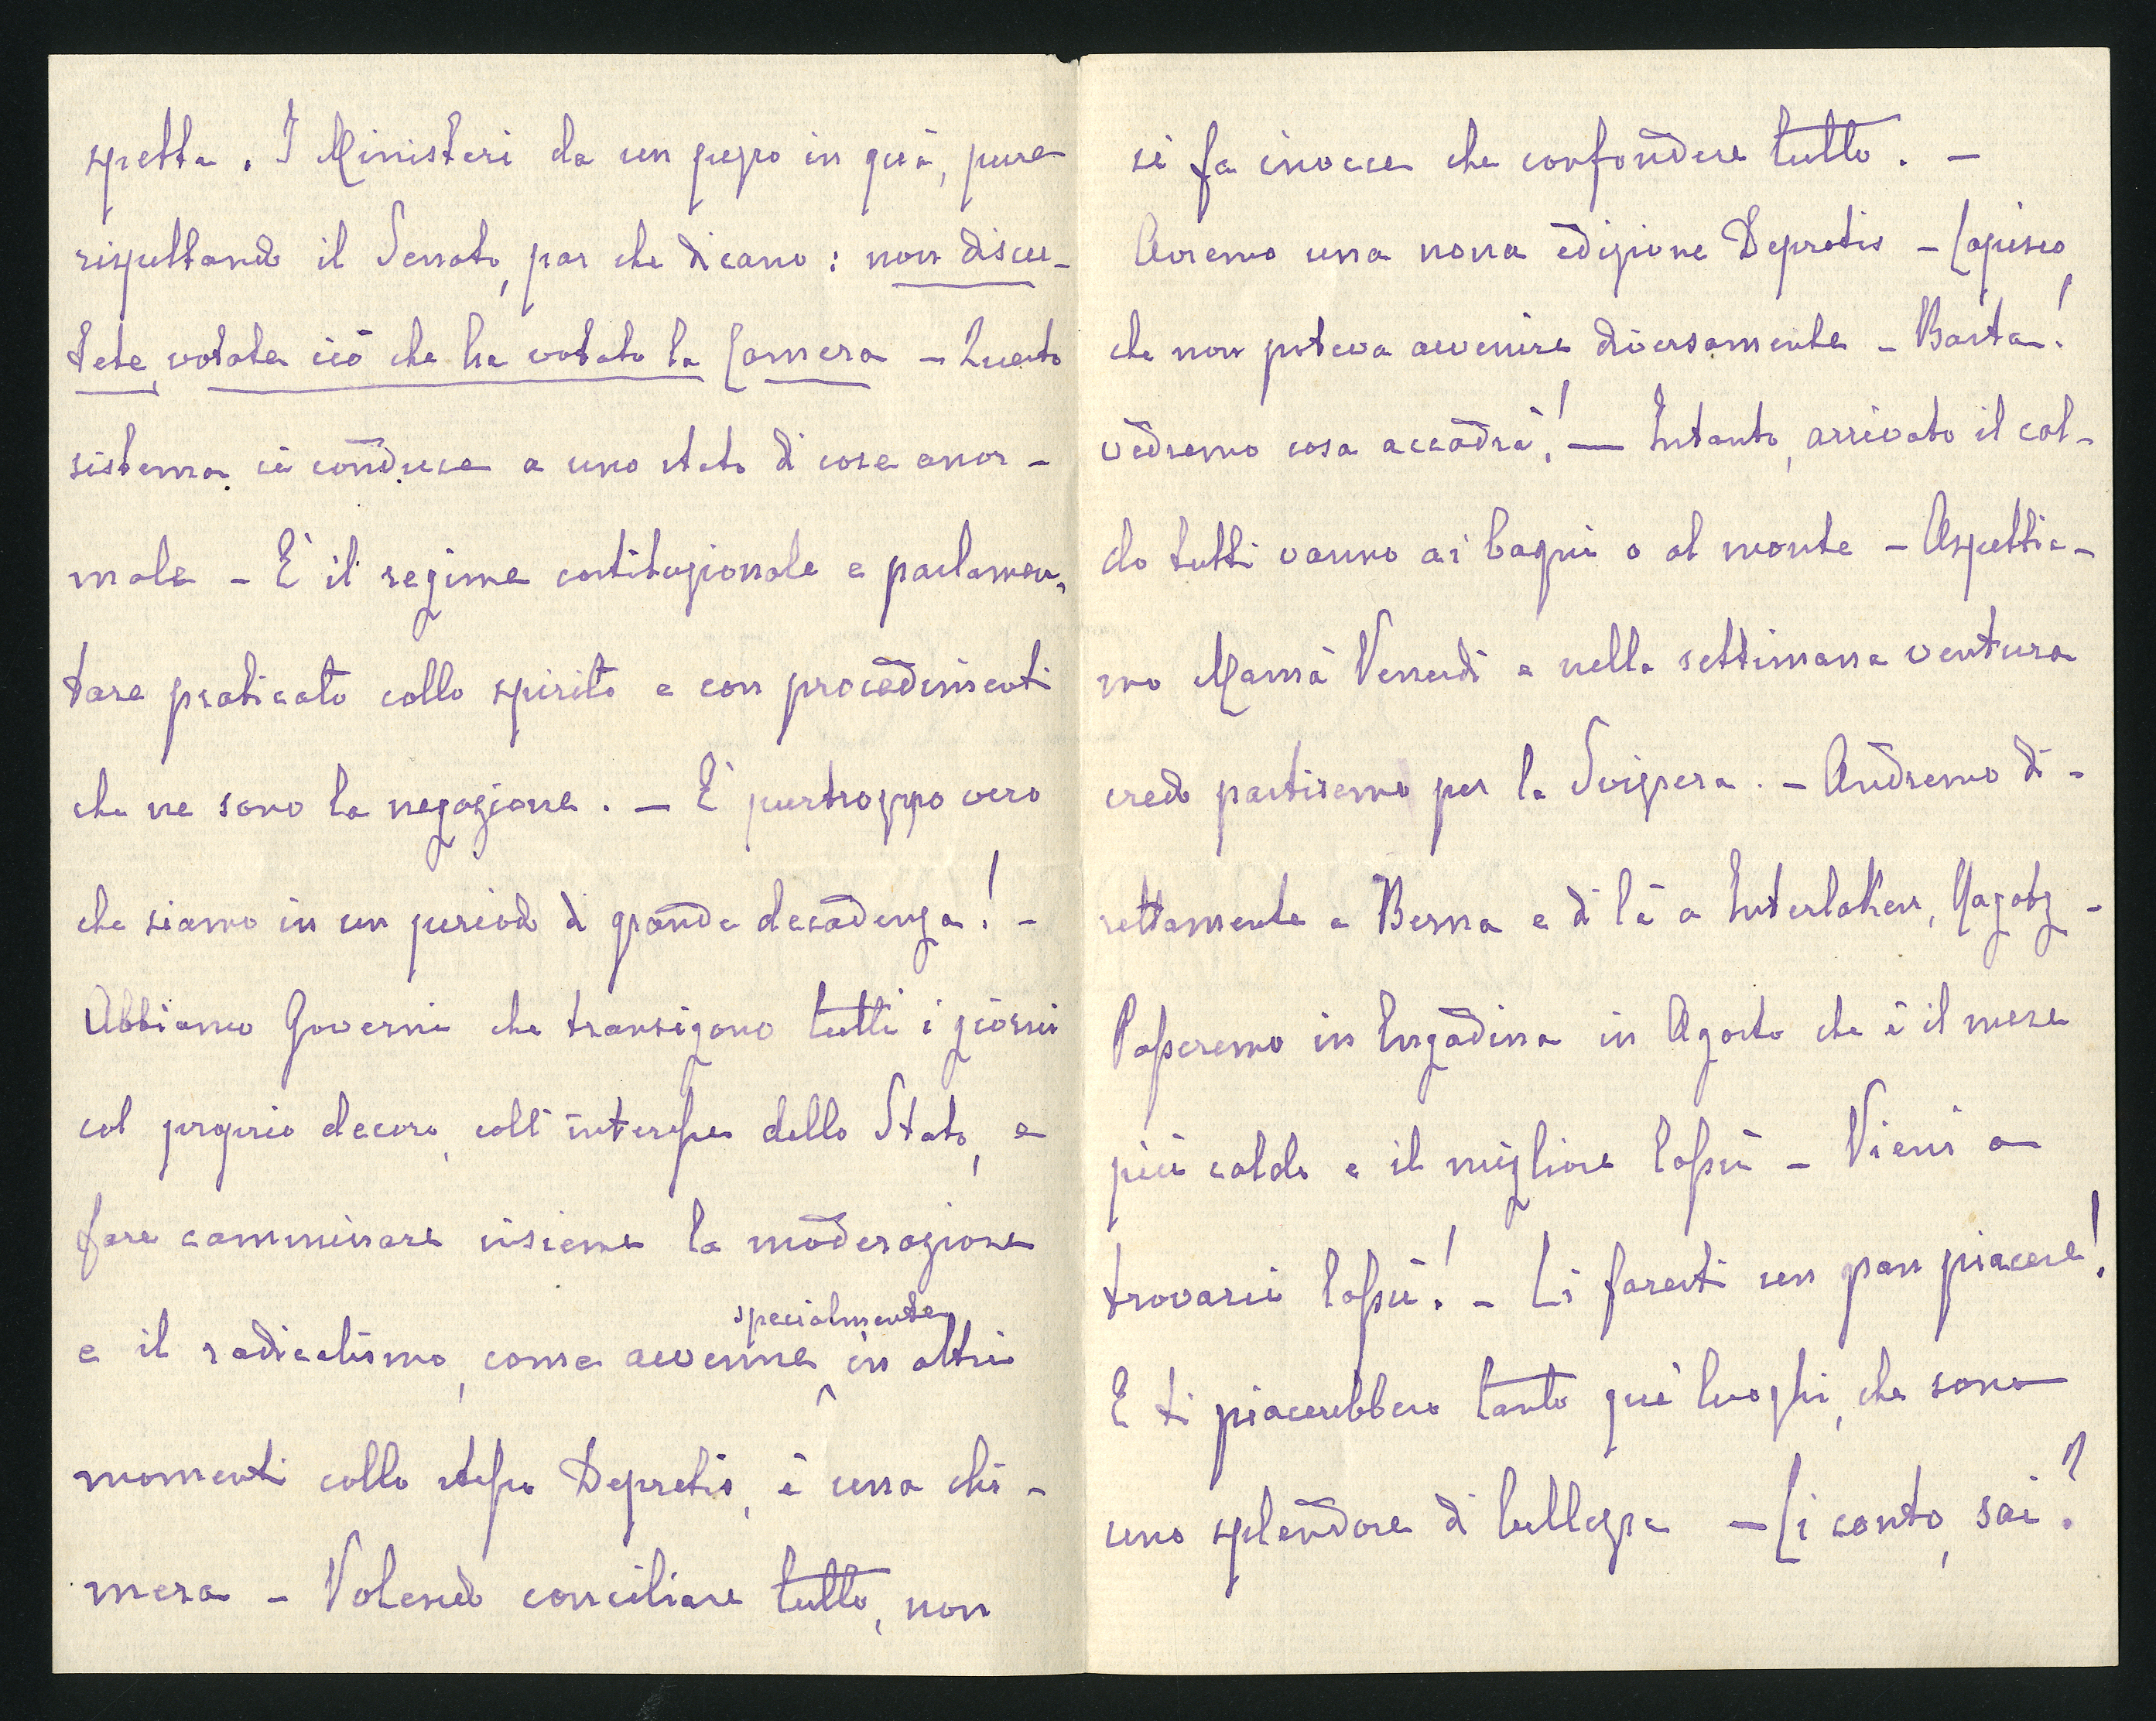 spetta. I Ministeri da un pezzo in quà, pure
rispettando il Senato, par che dicano: non discu-
tete, votate ciò che ha votato la Camera – Questo
sistema ci conduce a uno stato di cose anor-
male – È il regime costituzionale e parlamen-
tare praticato collo spirito e con procedimenti
che ne sono la negazione. – È purtroppo vero
che siamo in un periodo di grande decadenza! –
Abbiamo Governi che transigono tutti i giorni
col proprio decoro, coll'interesse dello Stato, e
fare camminare insieme la moderazione
specialmente
e il radicalismo, come avvenne in altri
momenti collo stesso Depretis, è una chi-
mera – Volendo conciliare tutto, non
si fa invece che confondere tutto. –
Avremo una nona edizione Depretis – Capisco,
che non poteva avvenire diversamente – Basta!
vedremo cosa accadrà! – Intanto, arrivato il cal-
do tutti vanno ai bagni o al monte – Aspettia-
mo Mamà Venerdì e nella settimana ventura
credo partiremo per la Svizzera. – Andremo di-
rettamente a Berna e di là a Interlaken, Ragatz –
Passeremo in Engadina in Agosto che è il mese
più caldo e il migliore lassù – Vieni a
trovarci lassù! – Ci faresti un gran piacere!
E ti piacerebbero tanto que' luoghi, che sono
uno splendore di bellezza – Ci conto, sai?